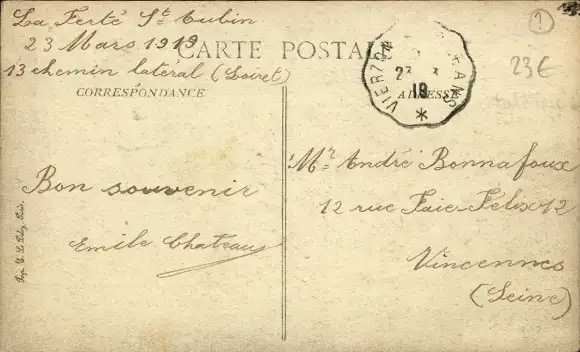 La Ferté St Aubin
23 Mars 1919
13 chemin latéral (Loiret)
CARTE POSTALE
CORRESPONDANCE
ADRESSE
VIERZON
23 3
19
*
1
23€
Bon souvenir
Emile Chateau
Mr André Bonnafoux
12 rue Faie-Felix 12
Vincennes
(Seine)